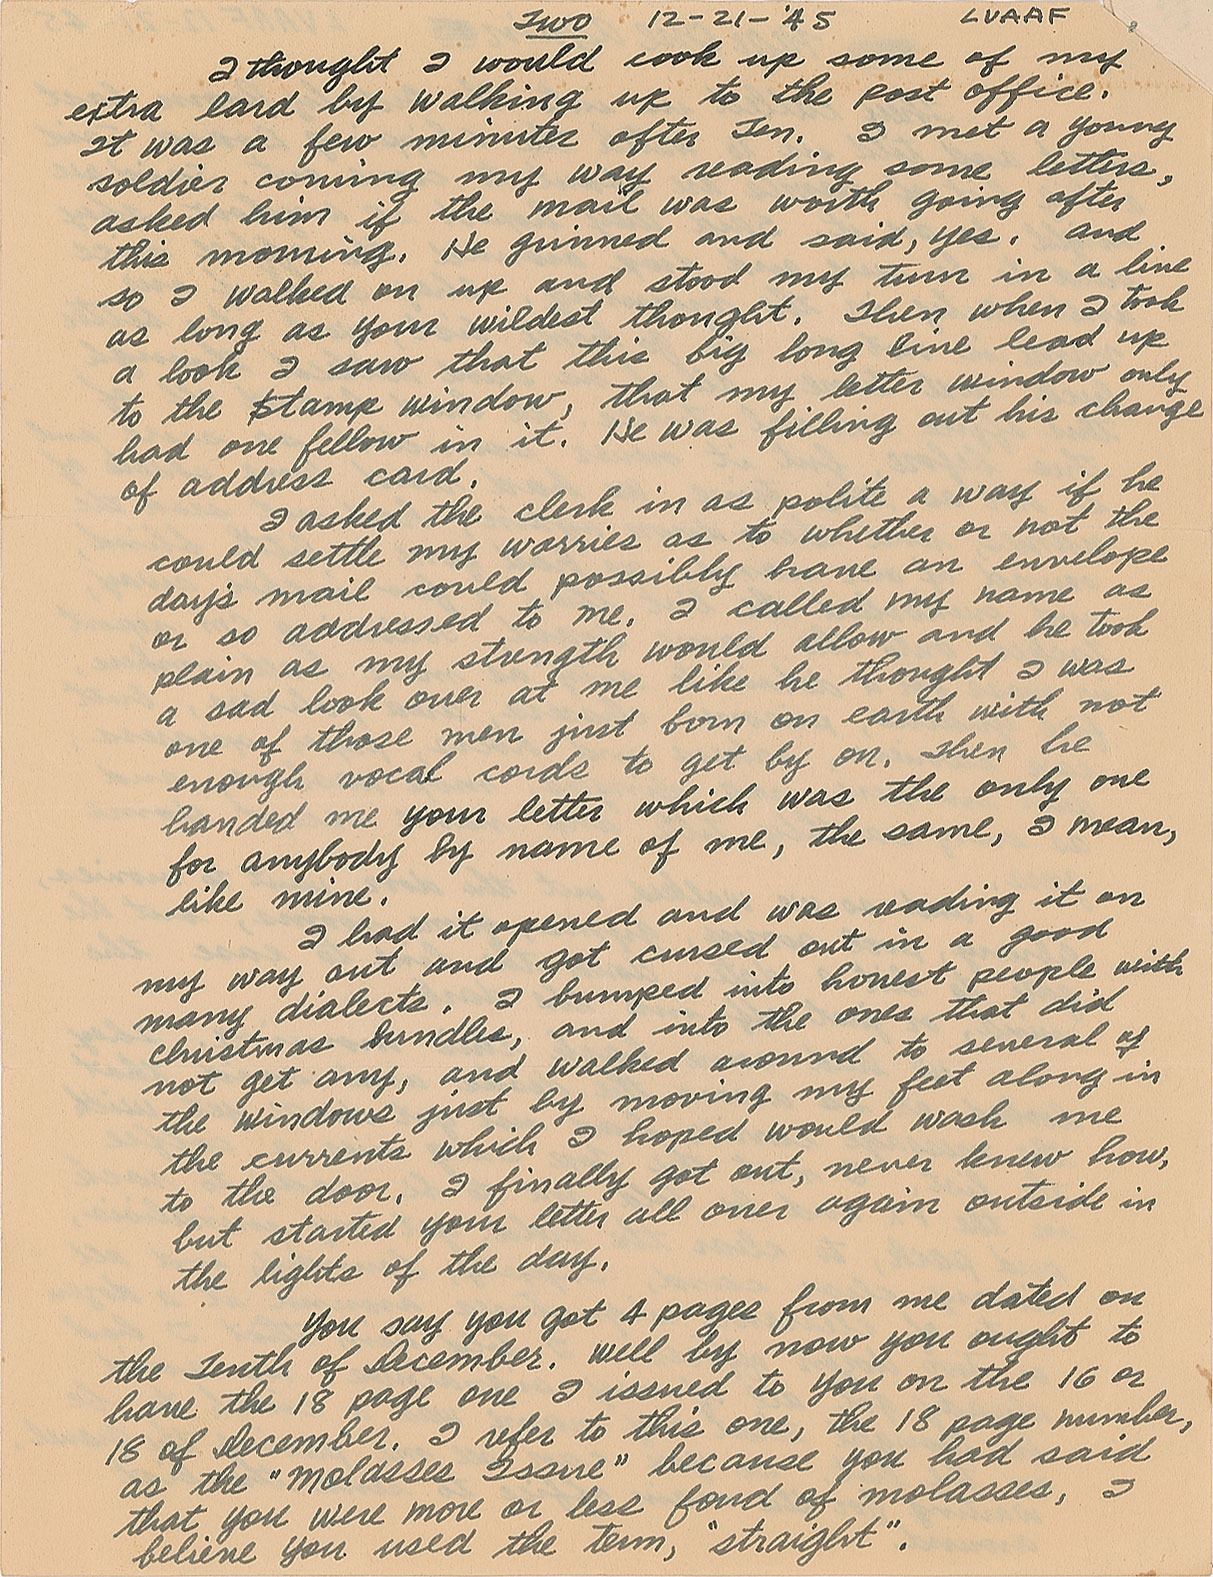 Two 12-21-'45 LVAAF
I thought I would cook up some of my
extra lard by walking up to the post office.
It was a few minutes after Ten. I met a young
soldier coming my way reading some letters,
asked him if the mail was worth going after
this morning. He grinned and said, yes. And
so I walked on up and stood my turn in a line
as long as your wildest thought. Then when I took
a look I saw that this big long line lead up
to the Stamp window, that my letter window only
had one fellow in it. He was filling out his change
of address card.
I asked the clerk in as polite a way if he
could settle my worries as to whether or not the
day's mail could possibly have an envelope
or so addressed to me. I called my name as
plain as my strength would allow and he took
a sad look over at me like he thought I was
one of those men just born on earth with not
enough vocal cords to get by on. Then he
handed me your letter which was the only one
for anybody by name of me, the same, I mean,
like mine.
I had it opened and was reading it on
my way out and got cursed out in a good
many dialects. I bumped into honest people with
christmas bundles, and into the ones that did
not get any, and walked around to several of
the windows just by moving my feet along in
the currents which I hoped would wash me
to the door. I finally got out, never knew how,
but started your letter all over again outside in
the lights of the day.
You say you got 4 pages from me dated on
the Tenth of December. Well by now you ought to
have the 18 page one I issued to you on the 16 or
18 of December. I refer to this one, the 18 page number,
as the "Molasses Issue" because you had said
that you were more or less fond of molasses, I
believe you used the term, "straight".